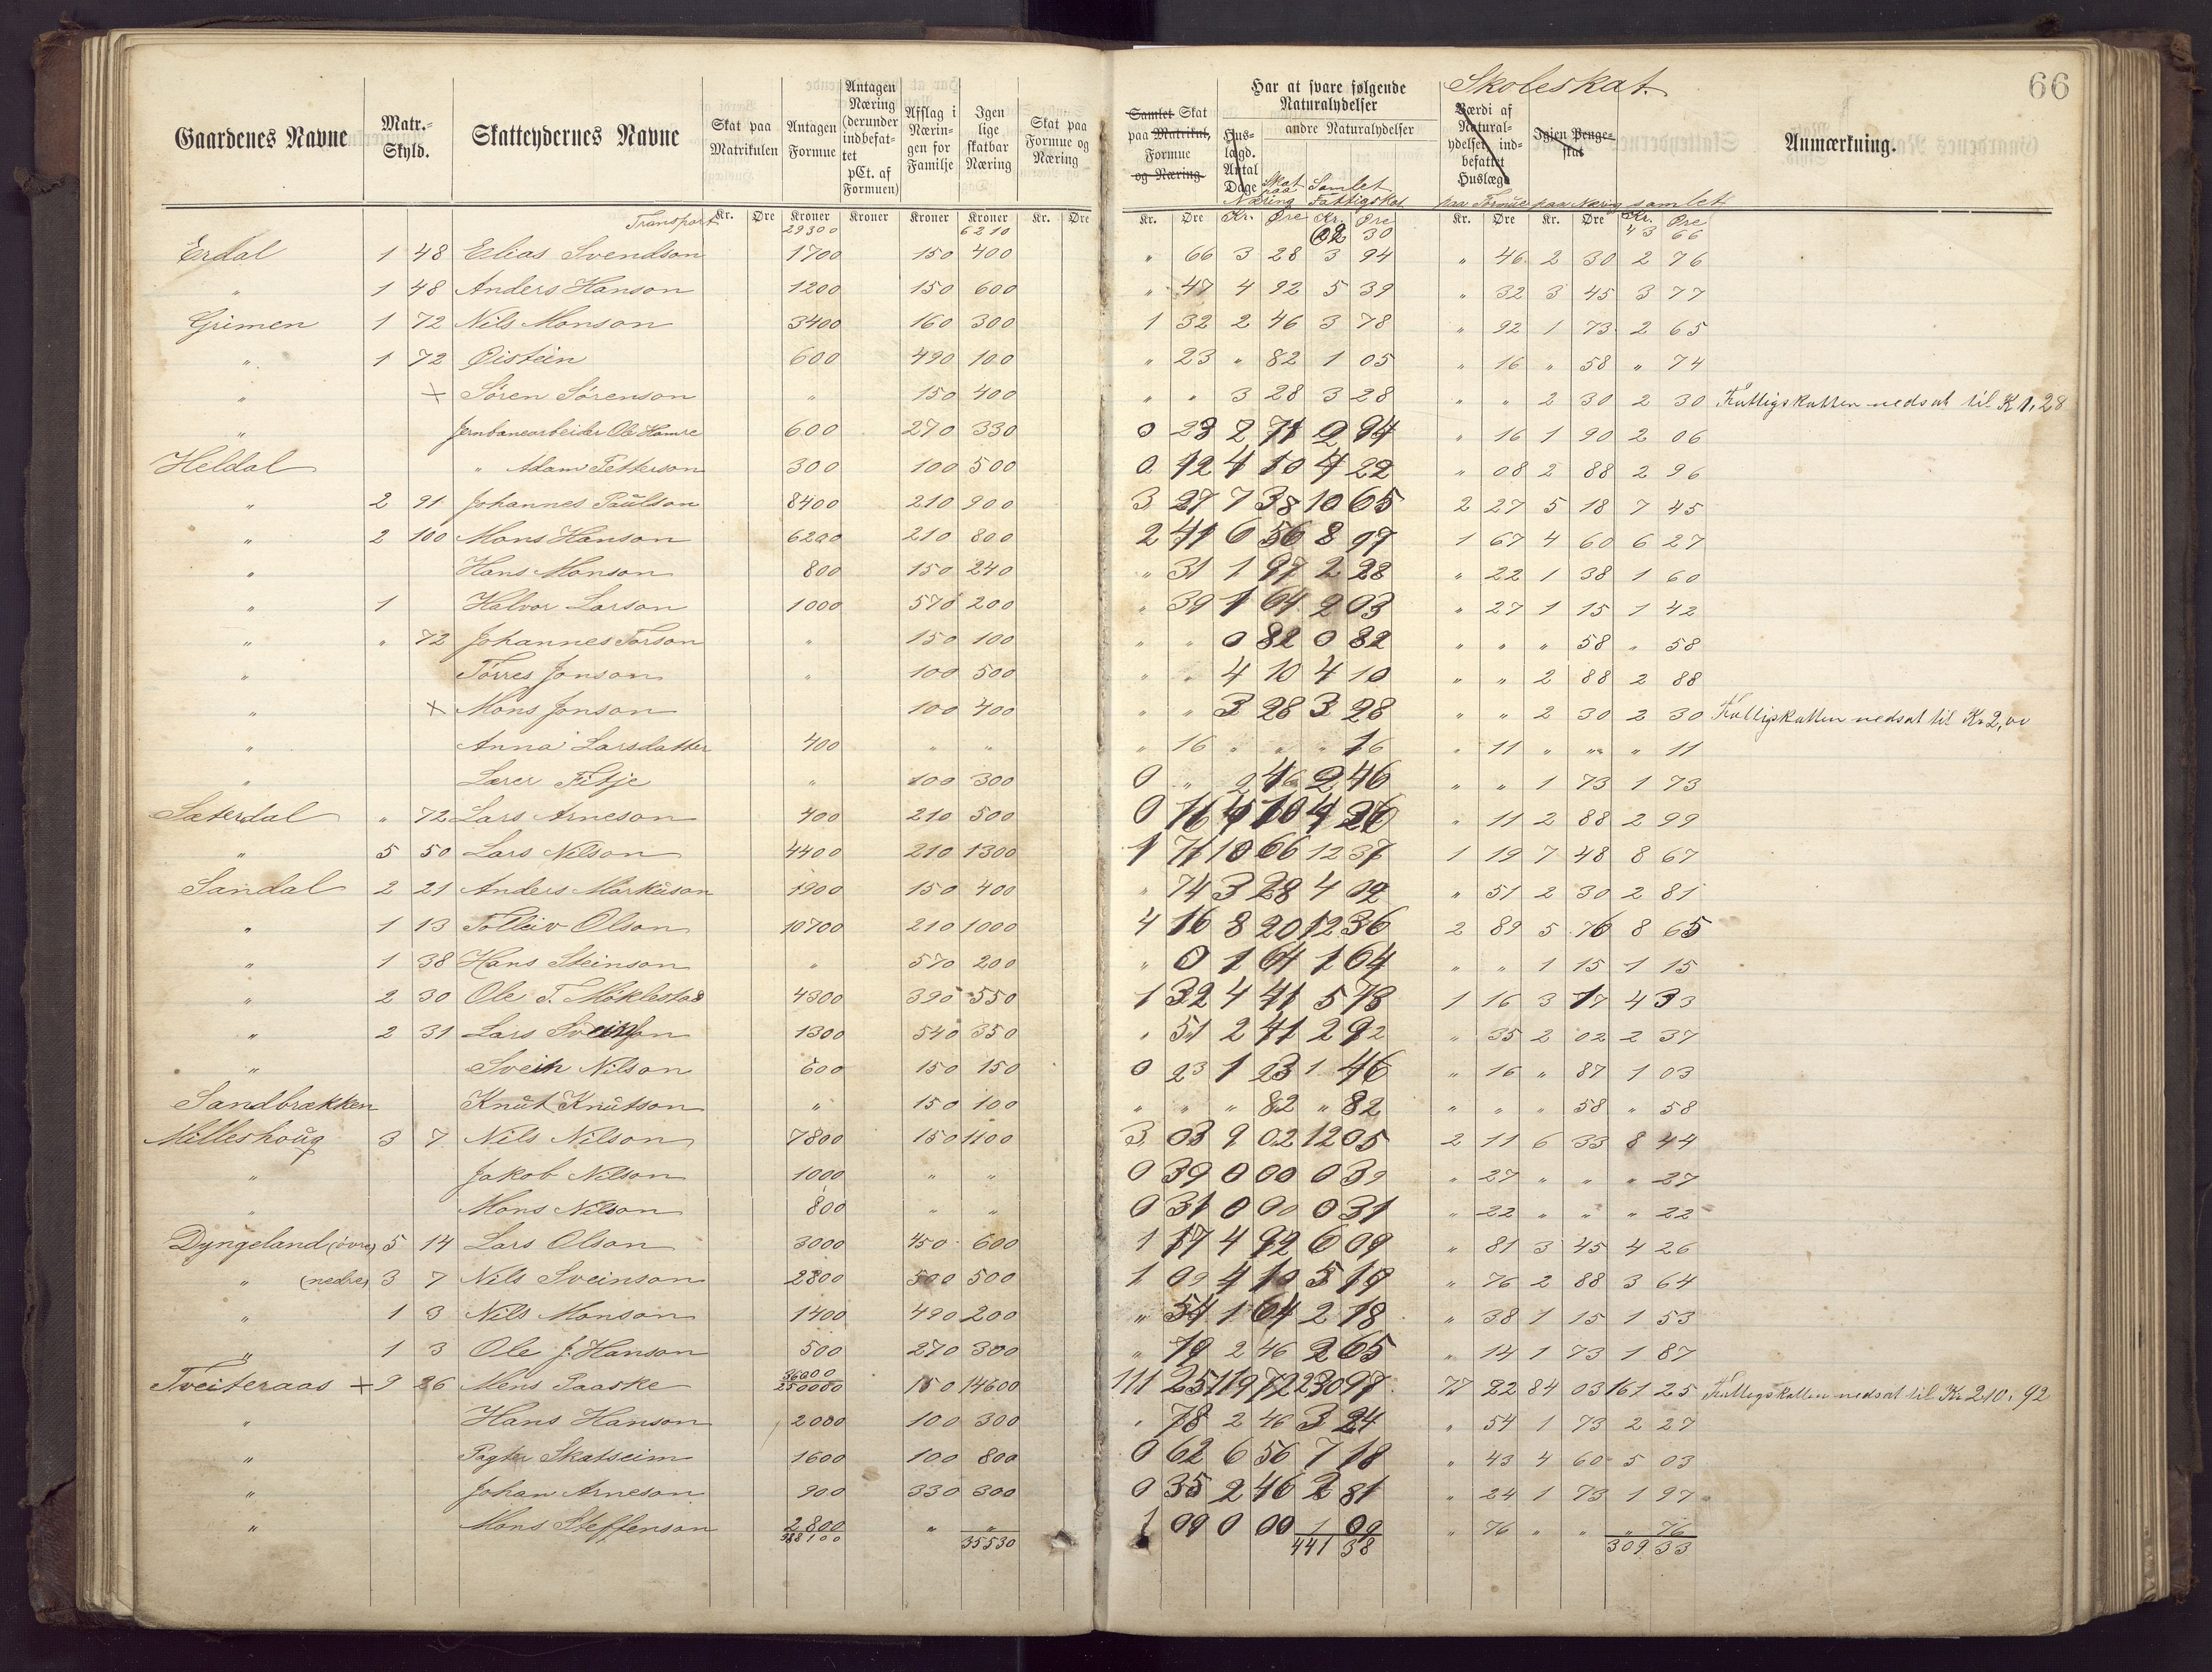 66
Skoleskat.
Gaardenes Navne | Matr.-Skyld. | Skatteydernes Navne | Skat paa Matrikulen | Antagen Formue | Antagen Næring (derunder indbefattet pCt. af Formuen) | Afslag i Næringen for Familje | Igenlige skatbar Næring | Skat paa Formue og Næring | Samlet Skat paa Matrikul, Formue og Næring | Har at svare følgende Naturalydelser | Huslægd. Antal Dage | andre Naturalydelser | Skat paa Næring | Samlet Fattigskat | Værdi af Naturalydelser indbefattet Huslægd | Igjen Pengeskat | paa Formue | paa Næring | samlet | Anmærkning.
Kr. Øre Kroner Kroner Kroner Kroner Kr. Øre Kr. Øre Kr. Øre Kr. Øre Kr. Øre Kr. Øre Kr. Øre
Transport 29300 6210 30 43 66
Erdal 1 48 Elias Svendson 1700 150 400 " 66 3 28 3 94 " 46 2 30 2 76
" 1 48 Anders Hanson 1200 150 600 " 47 4 92 5 39 " 32 3 45 3 77
Grimen 1 72 Nils Monson 3400 160 300 1 32 2 46 3 78 " 92 1 73 2 65
" 1 72 Øistein 600 490 100 " 23 " 82 1 05 " 16 " 58 " 74
" × Sören Sörenson " 150 400 " " 3 28 3 28 " " 2 30 2 30 Fattigskatten nedsat til K 1,28
" Jernbanearbeider Ole Hamre 600 270 330 0 23 2 71 2 94 " 16 1 90 2 06
Heldal " Adam Petterson 300 100 500 0 12 4 10 4 22 " 08 2 88 2 96
" 2 91 Johannes Paulson 8400 210 900 3 27 7 38 10 65 2 27 5 18 7 45
" 2 100 Mons Hanson 6200 210 800 2 41 6 56 8 97 1 67 4 60 6 27
" Hans Monson 800 150 240 " 31 1 97 2 28 " 22 1 38 1 60
" 1 Halvor Larson 1000 570 200 " 39 1 64 2 03 " 27 1 15 1 42
" " 72 Johannes Torson " 150 100 " " 0 82 0 82 " " " 58 " 58
" Törres Jonson " 100 500 " " 4 10 4 10 " " 2 88 2 88
" × Mons Jonson 100 400 " " 3 28 3 28 " " 2 30 2 30 Fattigskatten nedsat til Kr 2,00
" Anna Larsdatter 400 " " " 16 " " " 16 " 11 " " " 11
" Lærer Fitje " 100 300 0 " 2 46 2 46 " " 1 73 1 73
Sæterdal " 72 Lars Arneson 400 210 500 0 16 4 10 4 26 " 11 2 88 2 99
" 5 50 Lars Nilson 4400 210 1300 1 71 10 66 12 37 1 19 7 48 8 67
Sandal 2 21 Anders Markuson 1900 150 400 " 74 3 28 4 02 " 51 2 30 2 81
" 1 13 Tolleiv Olson 10700 210 1000 4 16 8 20 12 36 2 89 5 76 8 65
" 1 38 Hans Steinson " 570 200 " 0 1 64 1 64 " " 1 15 1 15
" 2 30 Ole T. Möklestad 4300 390 550 1 32 4 41 5 73 1 16 3 17 4 33
" 2 31 Lars Sveinson 1300 540 350 " 51 2 41 2 92 " 35 2 02 2 37
" Svein Nilson 600 150 150 0 23 1 23 1 46 " 16 " 87 1 03
Sandbrækken Knut Knutson " 150 100 " " " 82 " 82 " " " 58 " 58
Milleshoug 3 7 Nils Nilson 7800 150 1100 3 03 9 02 12 05 2 11 6 33 8 44
" Jakob Nilson 1000 " " 0 39 0 00 0 39 " 27 " " " 27
" Mons Nilson 800 " " 0 31 0 00 0 31 " 22 " " " 22
Dyngeland (övre) 5 14 Lars Olson 3000 450 600 1 17 4 92 6 09 " 81 3 45 4 26
" (nedre) 3 7 Nils Sveinson 2800 500 500 1 09 4 10 5 19 " 76 2 88 3 64
" 1 3 Nils Monson 1400 490 200 " 54 1 64 2 18 " 38 1 15 1 53
" 1 3 Ole J. Hanson 500 270 300 " 19 2 46 2 65 " 14 1 73 1 87
Tveiteraas × 9 26 Mens Paaske 36000 250000 150 14600 111 25 119 72 230 97 77 22 84 03 161 25 Fattigskatten nedsat til Kr 210,92
" Hans Hanson 2000 100 300 " 78 2 46 3 24 " 54 1 73 2 27
" Pagter Skatseim 1600 100 800 0 62 6 56 7 18 " 43 4 60 5 03
" Johan Arneson 900 330 300 0 35 2 46 2 81 " 24 1 73 1 97
" Mons Steffenson 2800 " " 1 09 0 00 1 09 " 76 " " " 76
35530 441 38 309 33